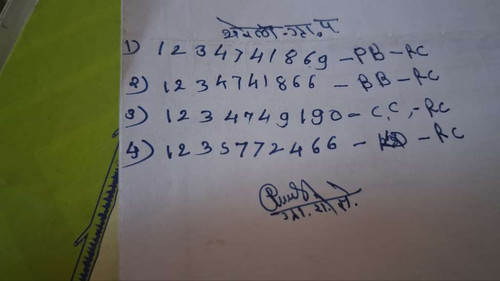 ग्रा.पं
1) 1234741869 - PB - RC
2) 1234741866 - BB - RC
3) 1234749190 - C.C. - RC
4) 1235772466 - - RC